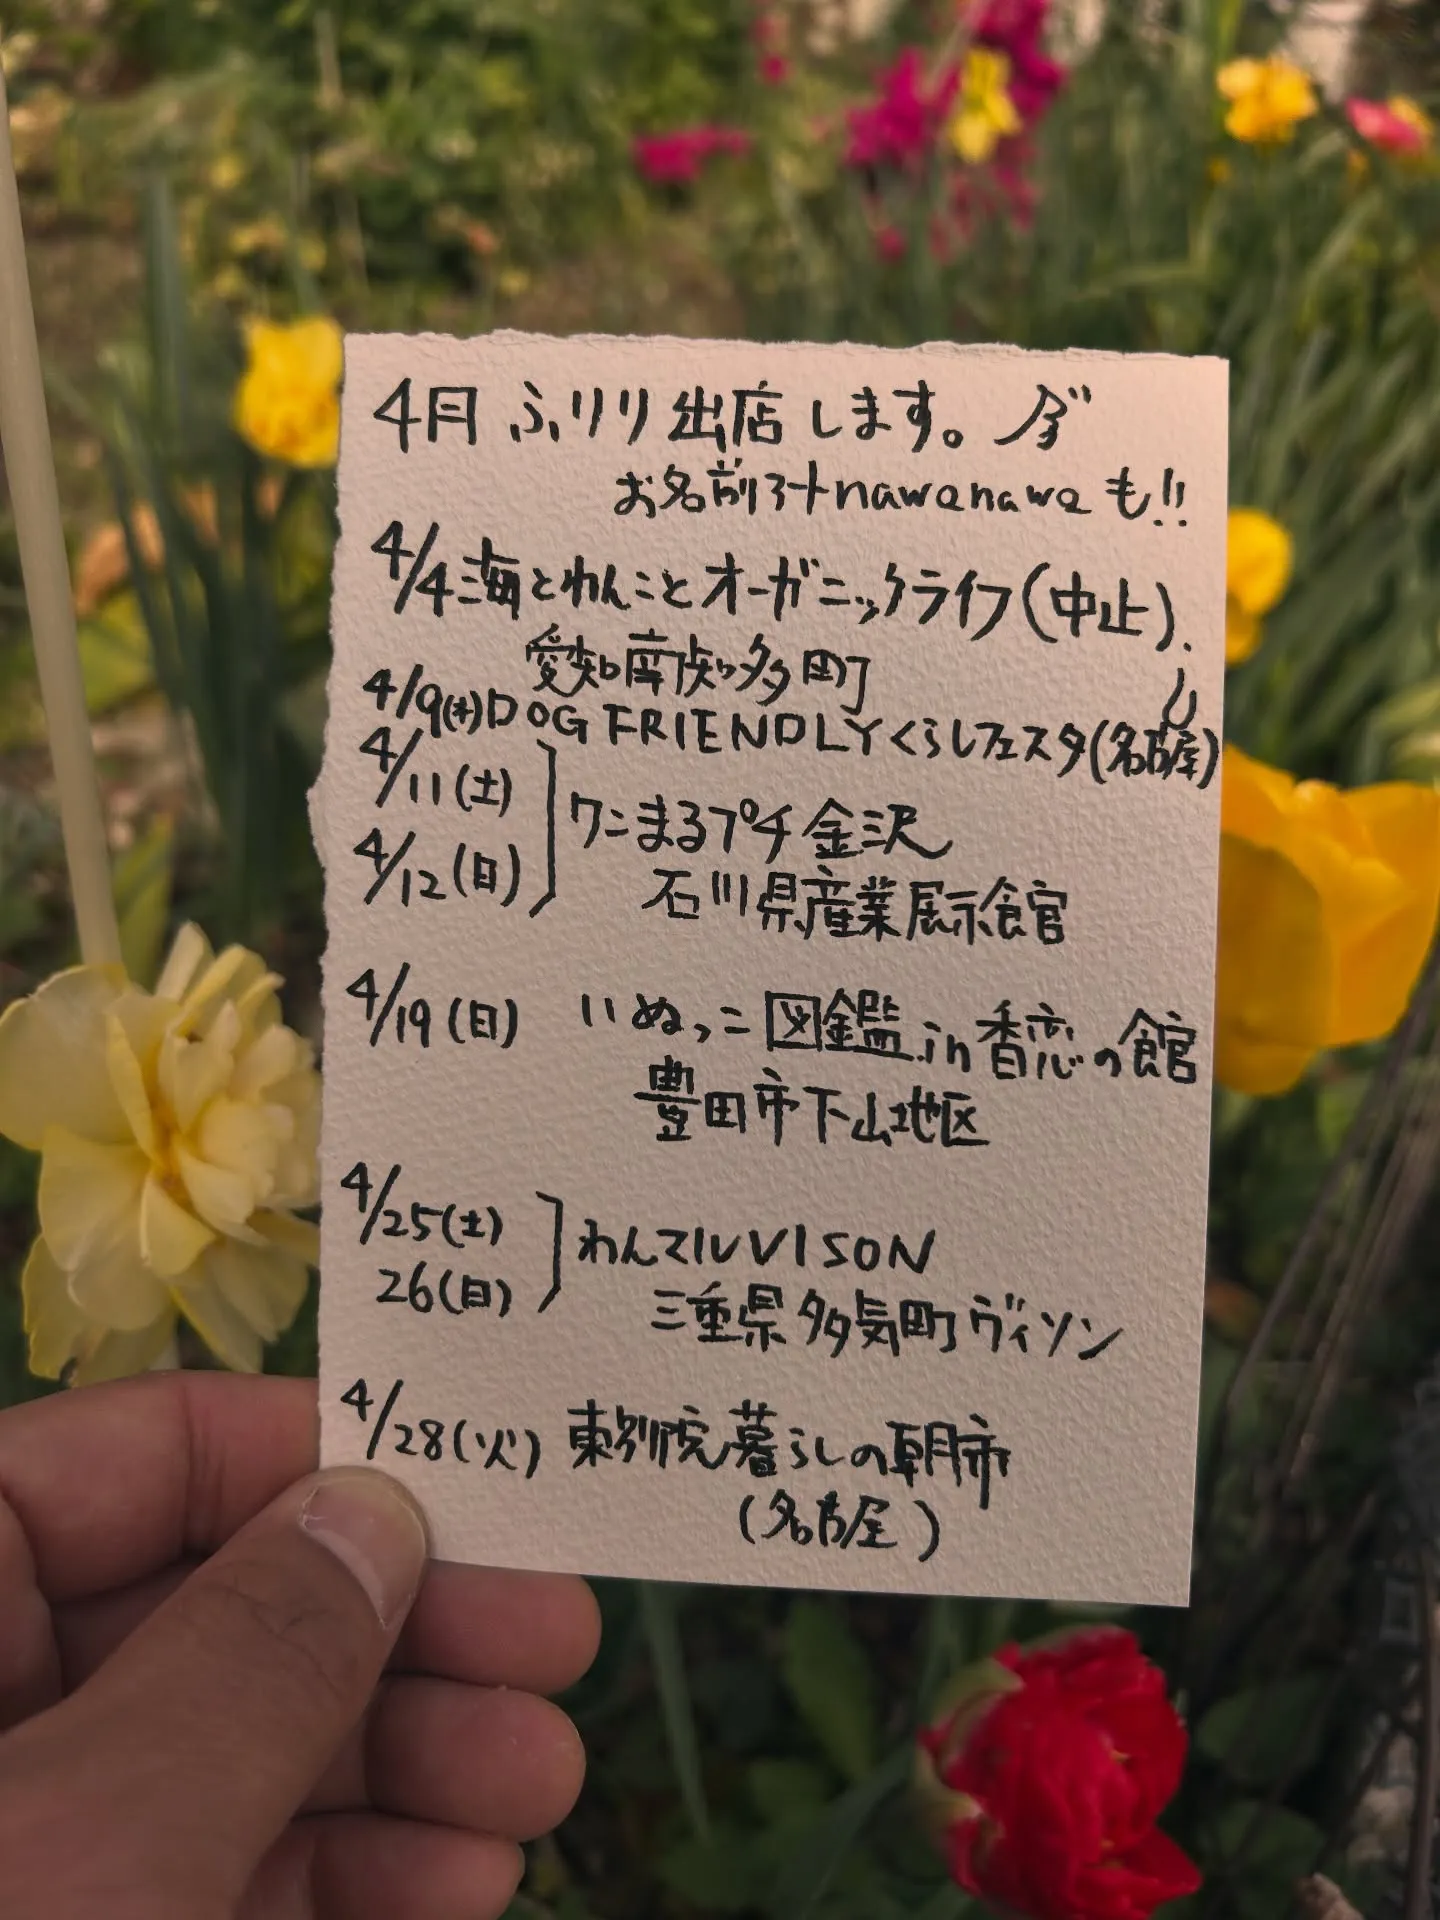 4月 ふリリ出店します。
お名前 nawanawaも!!
4/4 海とわんことオーガニックライフ(中止).
愛知 南知多町
4/9(木)DOG FRIENDLYくらしフェスタ(名古屋)
4/11(土)
4/12(日)
ワニまるプチ金沢
石川県産業展示館
4/19(日) いぬっこ図鑑in香恋の館
豊田市下山地区
4/25(土)
26(日)
わんマルVISON
三重県多気町ヴィソン
4/28(火) 東別院暮らしの朝市
(名古屋)